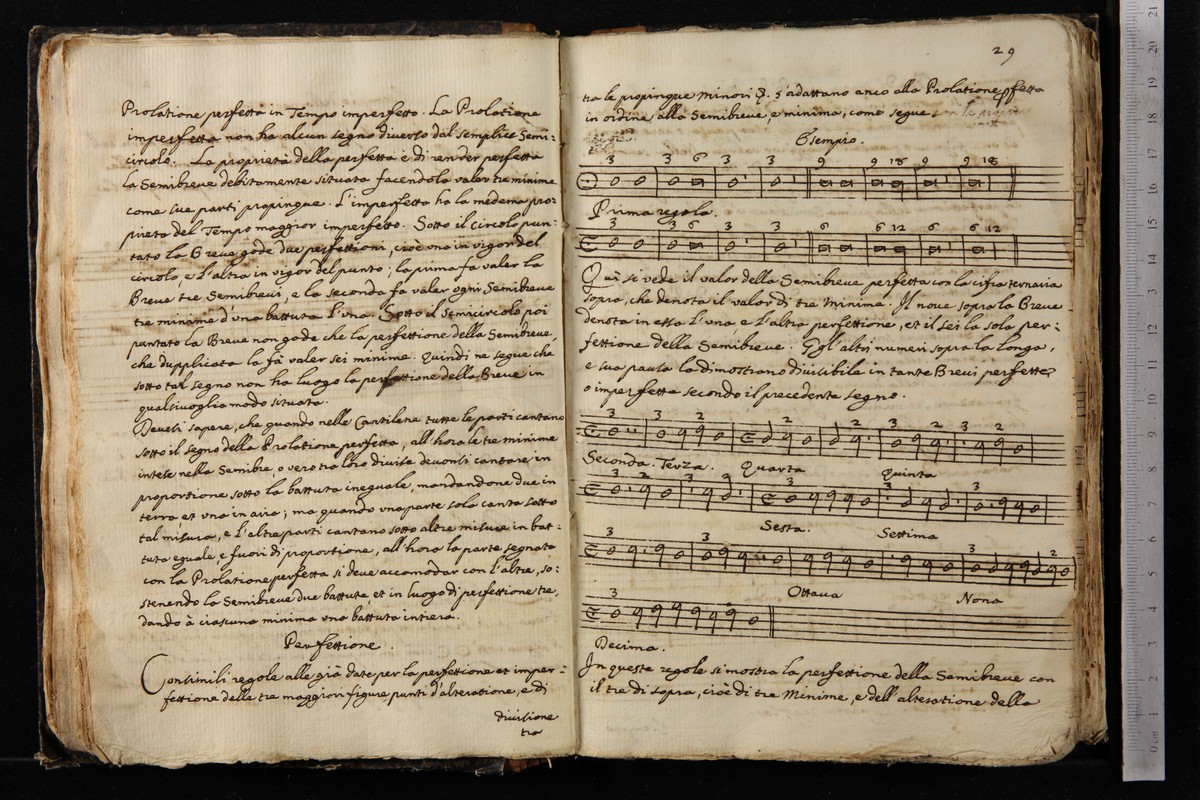 Prolatione perfetta in Tempo imperfetto. La Prolatione
imperfetta non ha alcun segno diverso dal semplice Semi=
circolo. La proprietà della perfetta è di render perfetta
la Semibreve debitamente situata facendola valer tre minime
come sue parti propinque. L'imperfetta ha la medema pro=
prietà del Tempo maggior imperfetto. Sotto il circolo pun=
tato la Breve gode due perfettioni, cioè una in vigor del
circolo, e l'altra in vigor del punto; la prima fa valer la
Breve tre Semibrevi, e la seconda fa valer ogni Semibreve
tre minime d'una battuta l'una. Sotto il semicircolo poi
puntato la Breve non gode che la perfettione della Semibreve
che dupplicata la fà valer sei minime. Quindi ne segue che
sotto tal segno non ha luogo la perfettione della Breve in
qualsivoglia modo situata.
Devesi sapere, che quando nelle Cantilene tutte le parti cantano
sotto il segno della Prolatione perfetta, all'hora le tre minime
intese nella Semibre o vero tra loro divise devonsi cantare in
proportione sotto la battuta ineguale, mandandone due in
terra et una in aria; ma quando una parte sola canta sotto
tal misura, e l'altre parti cantano sotto altre misure in bat=
tuta eguale, e fuori di proportione, all'hora la parte segnata
con la Prolatione perfetta si deve accomodar con l'altre, so=
stenendo la Semibreve due battute, et in luogo di perfettione tre,
dando à ciascuna minima una battuta intiera.
Perfettione.
Consimili regole alle già date per la perfettione et imper=
fettione delle tre maggiori figure punti d'alteratione, e di
divisione
tra
29
tra le propinque minori s'adattano anco alla Prolatione pfetta
in ordine alla Semibreve, e minima, come segue
Esempio.
3 3 6 3 3 9 9 18 9 18
Prima regola.
3 3 6 3 3 6 6 12 6 6 12
Quì si vede il valor della Semibreve perfetta con la cifra ternaria
sopra, che denota il valor di tre minime. Il nove sopra la Breve
denota in essa l'una, e l'altra perfettione, et il sei la sola per=
fettione della Semibreve. Gl'altri numeri sopra la Longa,
e sua pausa la dimostrano divisibile in tante Brevi perfette,
o imperfette secondo il precedente segno.
3 3 2 2 2 3 2 3 2
Seconda. Terza. Quarta quinta
3 2 3 2 3 3 3
Sesta. Settima
3 3 3 2
Ottava Nona
3
Decima.
In queste regole si mostra la perfettione della Semibreve con
il tre di sopra, cioè di tre Minime, e dell'alteratione della